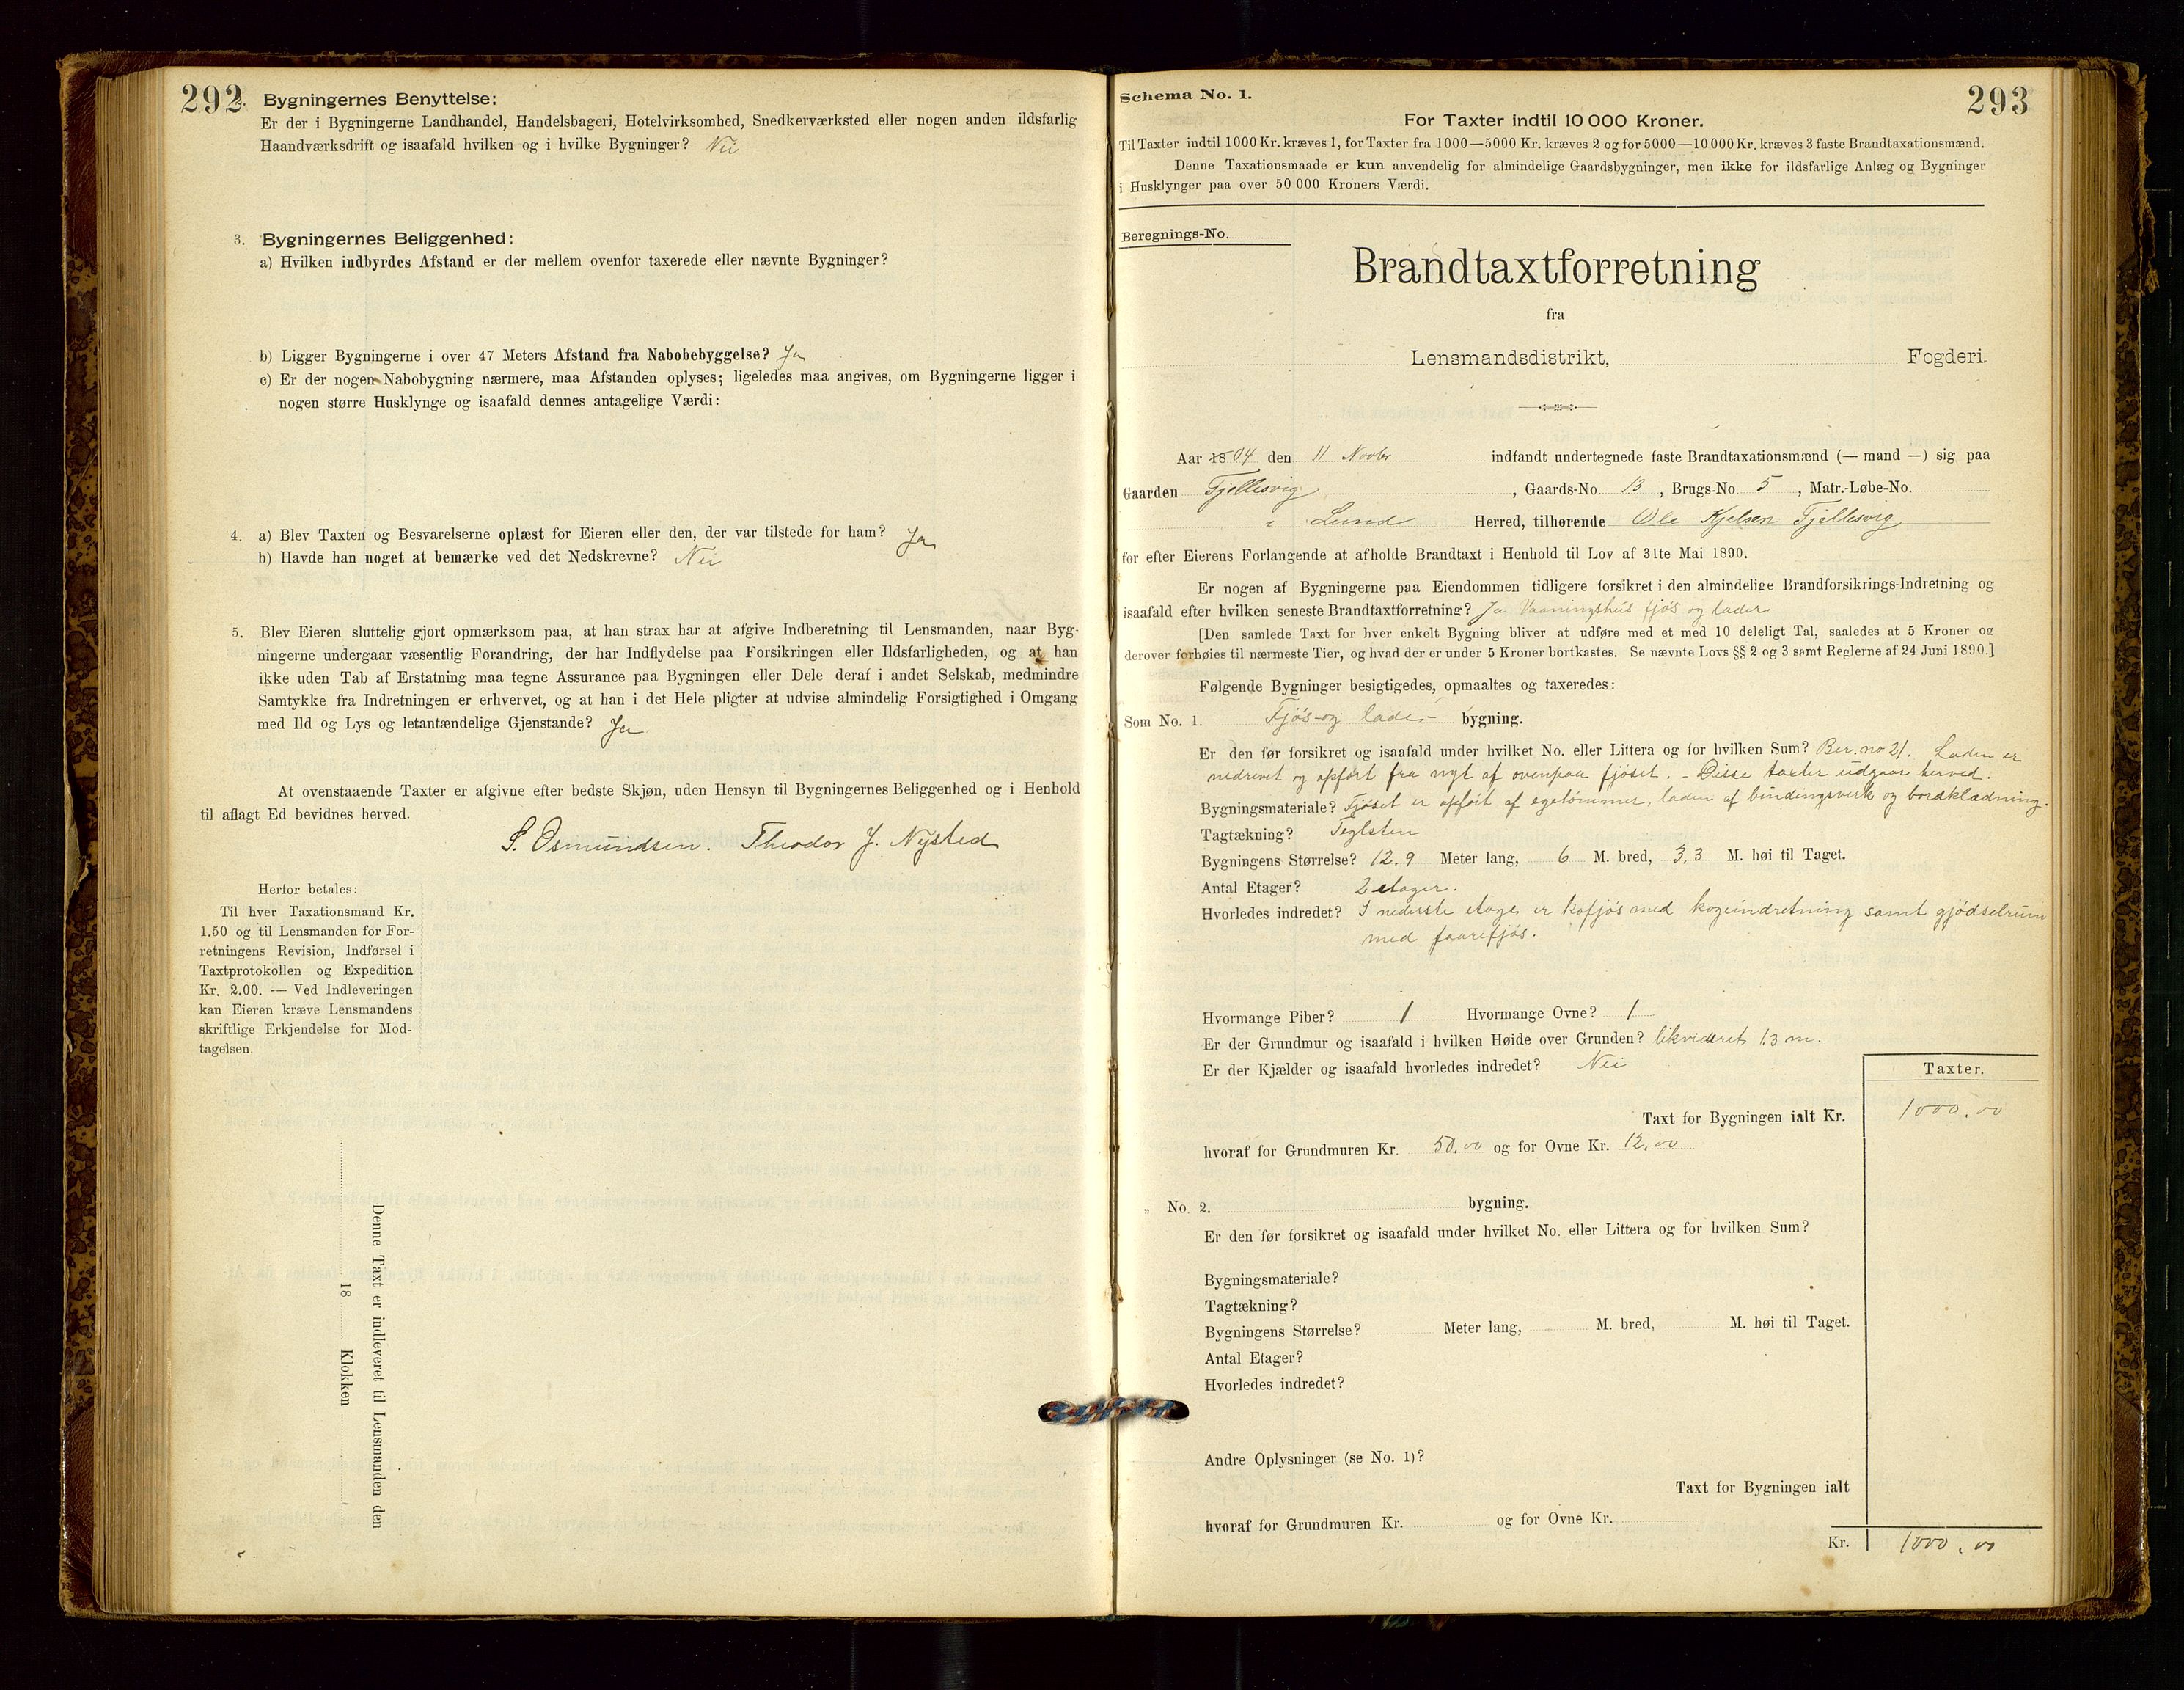 292
2. Bygningernes Benyttelse:
Er der i Bygningerne Landhandel, Handelsbageri, Hotelvirksomhed, Snedkerværksted eller nogen anden ildsfarlig
Haandværksdrift og isaafald hvilken og i hvilke Bygninger? Nei
3. Bygningernes Beliggenhed:
a) Hvilken indbyrdes Afstand er der mellem ovenfor taxerede eller nævnte Bygninger?
b) Ligger Bygningerne i over 47 Meters Afstand fra Nabobebyggelse? Ja
c) Er der nogen Nabobygning nærmere, maa Afstanden oplyses; ligeledes maa angives, om Bygningerne ligger i
nogen større Husklynge og isaafald dennes antagelige Værdi:
4. a) Blev Taxten og Besvarelserne oplæst for Eieren eller den, der var tilstede for ham? Ja
b) Havde han noget at bemærke ved det Nedskrevne? Nei
5. Blev Eieren sluttelig gjort opmærksom paa, at han strax har at afgive Indberetning til Lensmanden, naar Byg-
ningerne undergaar væsentlig Forandring, der har Indflydelse paa Forsikringen eller Ildsfarligheden, og at han
ikke uden Tab af Erstatning maa tegne Assurance paa Bygningen eller Dele deraf i andet Selskab, medmindre
Samtykke fra Indretningen er erhvervet, og at han i det Hele pligter at udvise almindelig Forsigtighed i Omgang
med Ild og Lys og letantændelige Gjenstande? Ja
At ovenstaaende Taxter er afgivne efter bedste Skjøn, uden Hensyn til Bygningernes Beliggenhed og i Henhold
til aflagt Ed bevidnes herved.
S. Osmundsen. Theodor J. Nysted
Herfor betales:
Til hver Taxationsmand Kr.
1.50 og til Lensmanden for For-
retningens Revision, Indførsel i
Taxtprotokollen og Expedition
Kr. 2.00. — Ved Indleveringen
kan Eieren kræve Lensmandens
skriftlige Erkjendelse for Mod-
tagelsen.
Denne Taxt er indleveret til Lensmanden den
18 Klokken
293
Schema No. 1.
For Taxter indtil 10 000 Kroner.
Til Taxter indtil 1000 Kr. kræves 1, for Taxter fra 1000—5000 Kr. kræves 2 og for 5000—10 000 Kr. kræves 3 faste Brandtaxationsmænd.
Denne Taxationsmaade er kun anvendelig for almindelige Gaardsbygninger, men ikke for ildsfarlige Anlæg og Bygninger
i Husklynger paa over 50 000 Kroners Værdi.
Beregnings-No.
Brandtaxtforretning
fra
Lensmandsdistrikt, Fogderi.
Aar 1804 den 11 Novbr indfandt undertegnede faste Brandtaxationsmænd (— mand —) sig paa
Gaarden Fjellesvig, Gaards-No. 13, Brugs-No. 5, Matr.-Løbe-No.
i Lund Herred, tilhørende Ole Kjelsen Fjellesvig
for efter Eierens Forlangende at afholde Brandtaxt i Henhold til Lov af 31te Mai 1890.
Er nogen af Bygningerne paa Eiendommen tidligere forsikret i den almindelige Brandforsikrings-Indretning og
isaafald efter hvilken seneste Brandtaxtforretning? Ja Vaaningshus fjøs og lader
[Den samlede Taxt for hver enkelt Bygning bliver at udføre med et med 10 deleligt Tal, saaledes at 5 Kroner og
derover forhøies til nærmeste Tier, og hvad der er under 5 Kroner bortkastes. Se nævnte Lovs §§ 2 og 3 samt Reglerne af 24 Juni 1890.]
Følgende Bygninger besigtigedes, opmaaltes og taxeredes:
Som No. 1. Fjøs- og lade- bygning.
Er den før forsikret og isaafald under hvilket No. eller Littera og for hvilken Sum? Ber. no 21. Laden er
nedrevet og opført fra nyt af ovenpaa fjøset. - Disse taxter udgaar herved.
Bygningsmateriale? Fjøset er opført af egetømmer, laden af bindingsverk og bordklædning.
Tagtækning? Teglsten
Bygningens Størrelse? 12,9 Meter lang, 6 M. bred, 3,3 M. høi til Taget.
Antal Etager? 2 etager.
Hvorledes indredet? I nederste etage er kofjøs med kogeindretning samt gjødselrum
med faarefjøs.
Hvormange Piber? 1 Hvormange Ovne? 1
Er der Grundmur og isaafald i hvilken Høide over Grunden? likvideret 1,3 m.
Er der Kjælder og isaafald hvorledes indredet? Nei
Taxter.
Taxt for Bygningen ialt Kr. 1000.00
hvoraf for Grundmuren Kr. 50.00 og for Ovne Kr. 12.00
„ No. 2. bygning.
Er den før forsikret og isaafald under hvilket No. eller Littera og for hvilken Sum?
Bygningsmateriale?
Tagtækning?
Bygningens Størrelse? Meter lang, M. bred, M. høi til Taget.
Antal Etager?
Hvorledes indredet?
Andre Oplysninger (se No. 1)?
Taxt for Bygningen ialt
hvoraf for Grundmuren Kr. og for Ovne Kr.
Kr. 1000.00